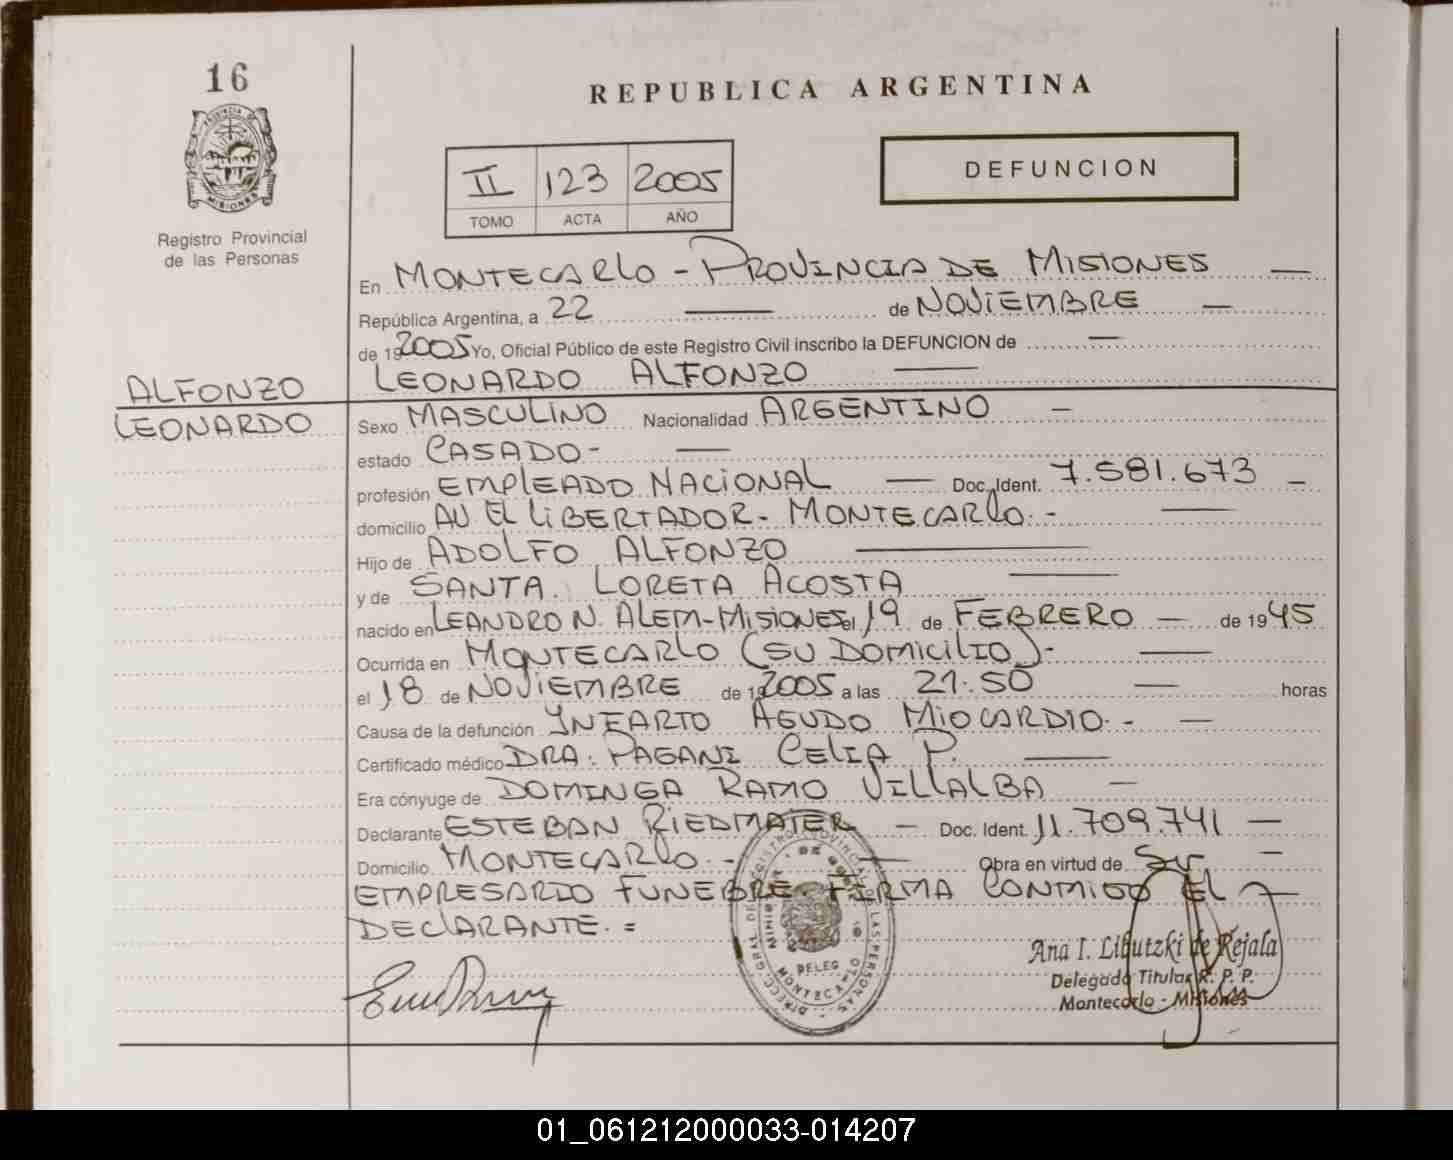 16
REPUBLICA ARGENTINA
DEFUNCION
II 123 2005
TOMO ACTA AÑO
PROVINCIA DE
MISIONES
Registro Provincial
de las Personas
En MONTECARLO - PROVINCIA DE MISIONES —
República Argentina, a 22 — de NOVIEMBRE —
de 192005 Yo, Oficial Público de este Registro Civil inscribo la DEFUNCION de —
LEONARDO ALFONZO —
ALFONZO
LEONARDO
Sexo MASCULINO Nacionalidad ARGENTINO —
estado CASADO - —
profesión EMPLEADO NACIONAL — Doc. Ident. 7.581.673 —
domicilio AV. EL LIBERTADOR - MONTECARLO. - —
Hijo de ADOLFO ALFONZO —
y de SANTA LORETA ACOSTA —
nacido en LEANDRO N. ALEM - MISIONES el 19 de FEBRERO — de 1945
Ocurrida en MONTECARLO (SU DOMICILIO). - —
el 18 de NOVIEMBRE de 192005 a las 21.50 — horas
Causa de la defunción INFARTO AGUDO MIOCARDIO. - —
Certificado médico DRA. PAGANI CELIA P. —
Era cónyuge de DOMINGA RAMO VILLALBA —
Declarante ESTEBAN RIEDMAIER — Doc. Ident. 11.709.741 —
Domicilio MONTECARLO. - — Obra en virtud de SU —
EMPRESARIO FUNEBRE FIRMA CONMIGO EL —
DECLARANTE. =
DELEG
MONTECARLO
Ana I. Libutzki de Rejala
Delegado Titular R. P. P.
Montecarlo - Misiones
01_061212000033-014207